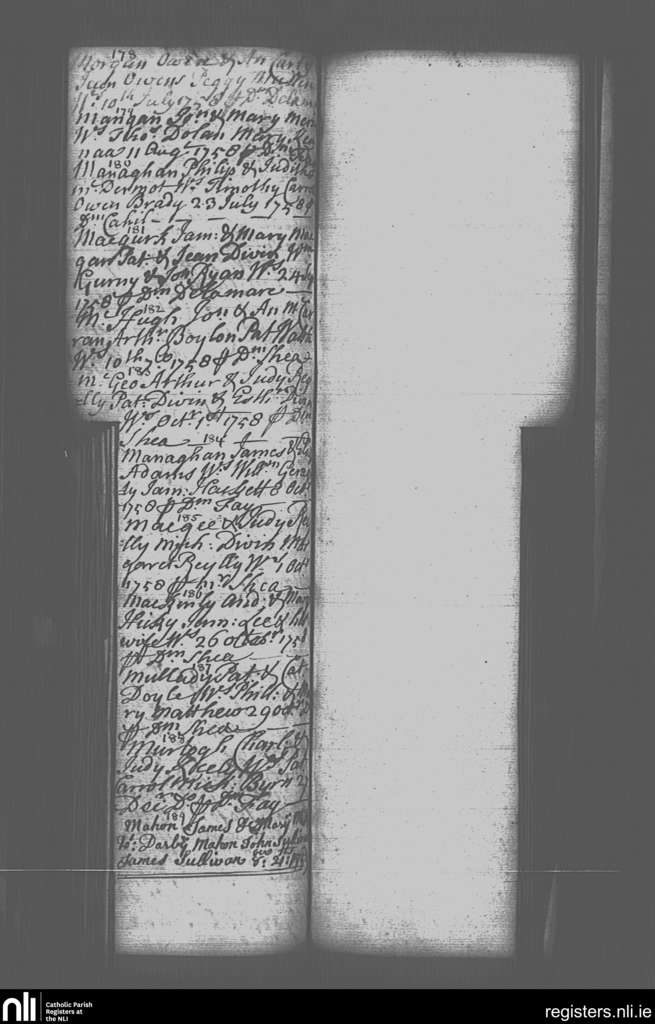 178
Morgan Owen & An Carty
Juon Owens Peggy
Ws. 10th July 1758 Dm Delam
179
Mangan Jon & Mary
Ws Tho: Dolan Mary
naa 11 Aug: 1758
180
Managhan Philip & Judith
mc Dermot Ws. Timothy Carro
Owen Brady 23 July 1758
Dm Cahil
181
Maegurk Jam: & Mary Mae
gan Pat & Jean Divin Wm
Gurny & Jon Ryan Ws. 24
1758 Dm Delamare
182
Mc Hugh Jon & An Mc Car
ran Arthr Boylon Pat
Ws. 10th 7br 1758 Dm Shea
183
mc Geo Arthur & Judy Rey
lly Pat: Divin & Esth: Divin
Ws. Octr. 1st 1758 Dm
Shea
184
Managhan James &
Adams Ws. Willm
ty Jam: 8 Octr
1758 Dm Fay
185
Maegee & Judy Re
lly Mich: Divin Mar
garet Reylly Ws. 1 Octr
1758 mr Shea
186
Maeginly And: & Mary
Hicky Jam: Lee & his
wife Ws. 26 Octobr. 1758
Dm Shea
187
Mullady Pat. & Cat
Doyle Ws. Phill: & Ma
ry Matthew 29 Octr
Dm Shea
188
Murtogh Charl: &
Judy Ws. Pat
Carrol Mich: Byrn 2
Decr. Do. Dm Fay
189
Mahon James & Mary
Ts: Darby Mahon John
James Sullivan 8: 21:
nli
Catholic Parish
Registers at
the NLI
registers.nli.ie